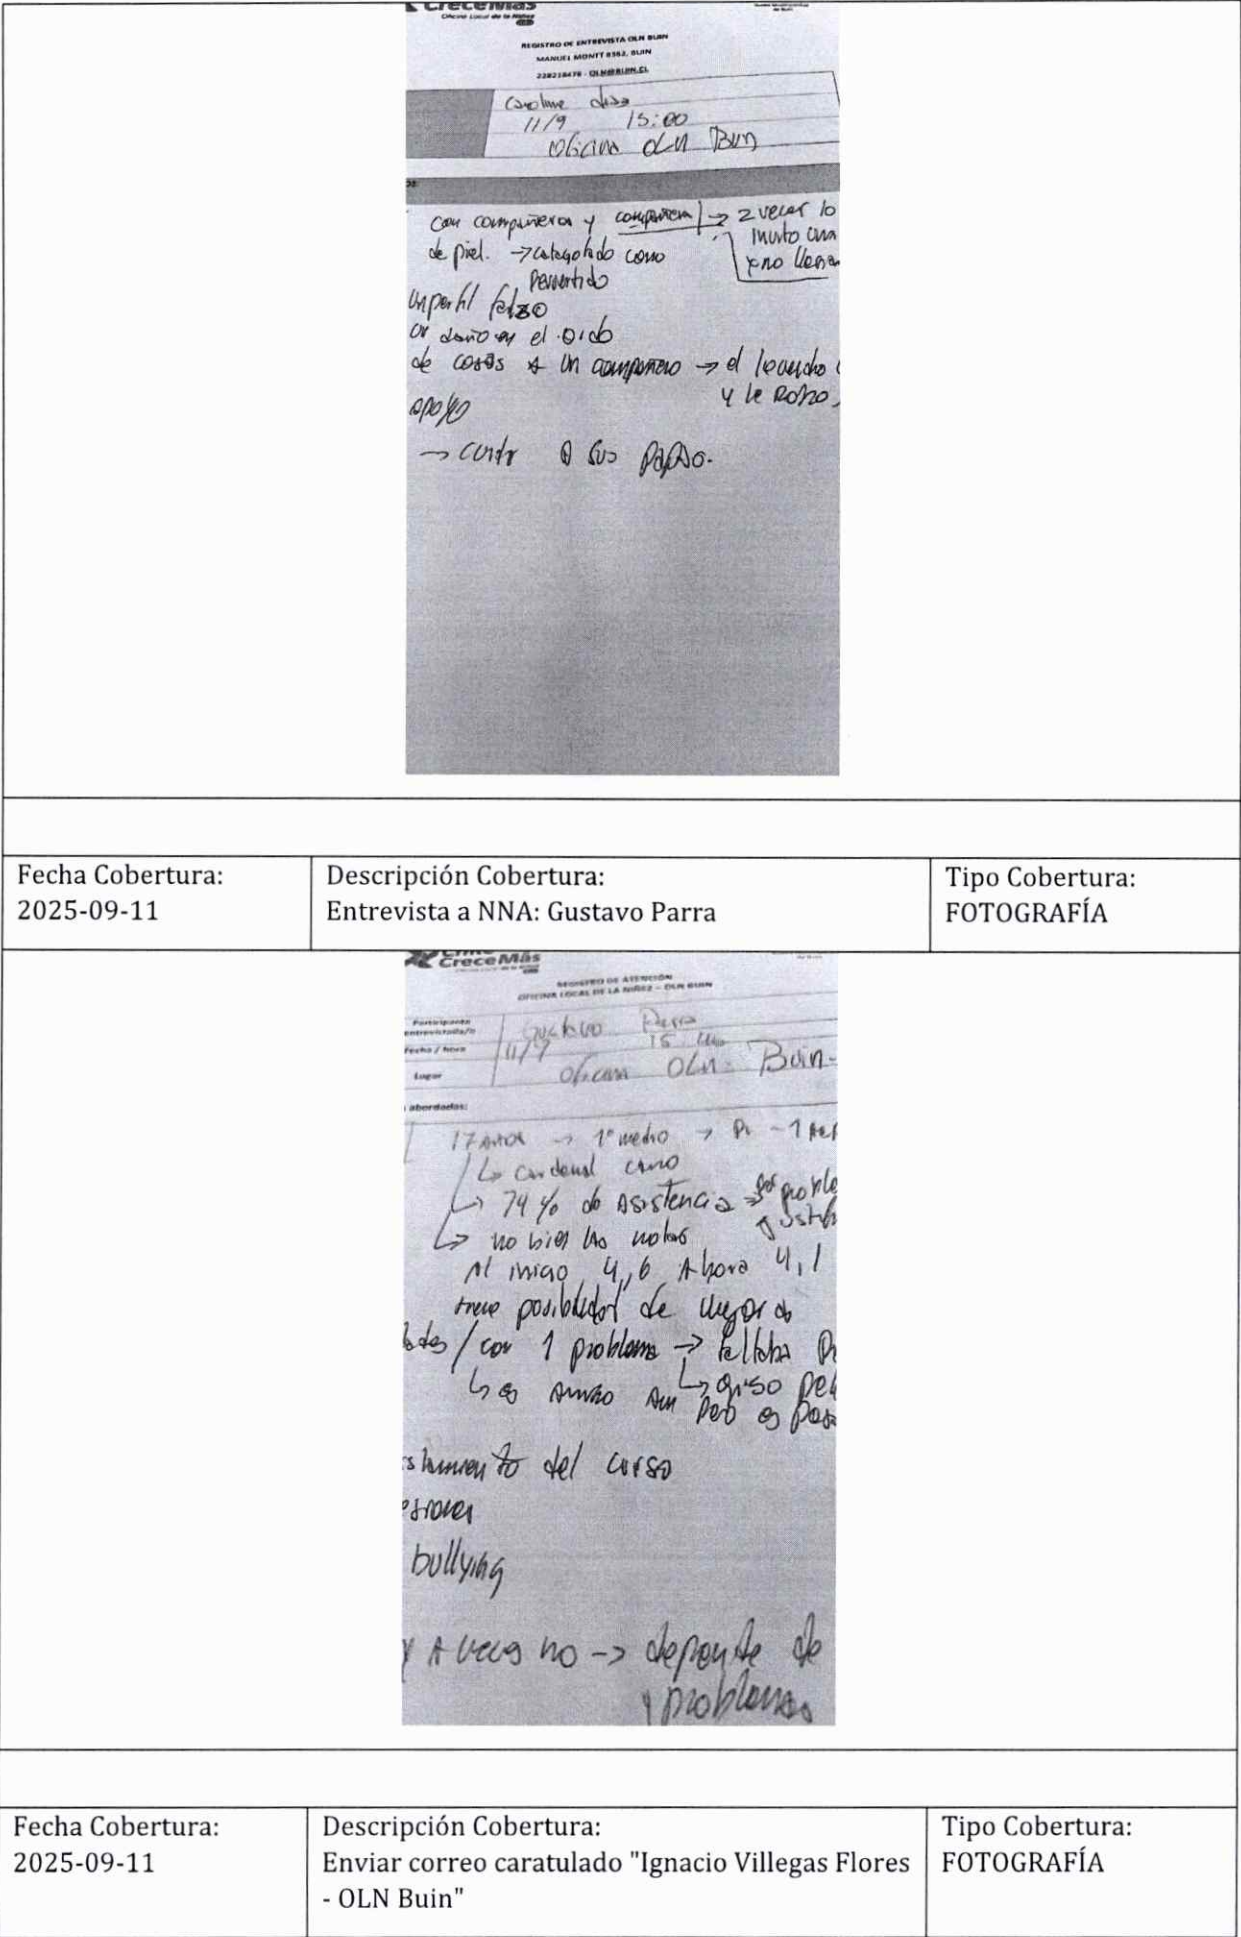 CreceMás
Oficina Local de la Niñez
REGISTRO DE ENTREVISTA OLN BUIN
MANUEL MONTT 8352, BUIN
228218478 - OLN@BUIN.CL
11/9 15:00
Oficina OLN Buin
con compañeros y compañera → 2 veces lo
de piel. → catalogado como
pervertido
un perfil falso
daño en el oido
de cosas a un compañero → el
y le Robo
apoyo
→ a sus papás.
Fecha Cobertura:
2025-09-11
Descripción Cobertura:
Entrevista a NNA: Gustavo Parra
Tipo Cobertura:
FOTOGRAFÍA
CreceMás
REGISTRO DE ATENCIÓN
OFICINA LOCAL DE LA NIÑEZ - OLN BUIN
Participante
entrevistada/o
Gustavo Parra
Fecha / hora
11/9 15
Lugar
Oficina OLN - Buin-
abordados:
17 años → 1° medio →
↳ Cardenal Caro
↳ 74 % de Asistencia → por proble
↳ no bien las notas
Al inicio 4,6 Ahora 4,1
tiene posibilidad de mejorar
/ con 1 problema → faltaba
del curso
bullying
y A veces no → depende de
problemas
Fecha Cobertura:
2025-09-11
Descripción Cobertura:
Enviar correo caratulado "Ignacio Villegas Flores
- OLN Buin"
Tipo Cobertura:
FOTOGRAFÍA